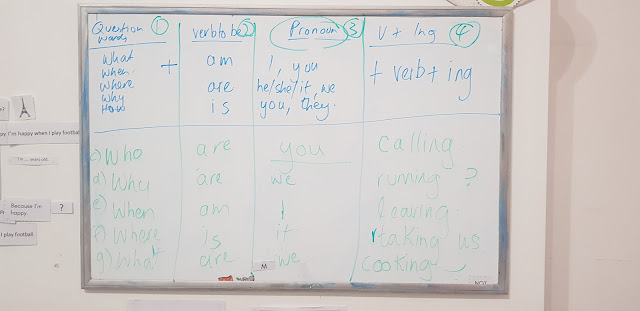 Question words ① verb to be ② Pronoun ③ V + ing ④
What + am I, you + verb + ing
When
Where are he/she/it, we
Why
How is you, they.
c) Who are you calling
d) Why are we running ?
e) When am I leaving
f) Where is it taking us
g) What are we cooking
M
NOT
py. I'm happy when I play football
I'm ... years old.
Because I'm happy.
?
I play football.